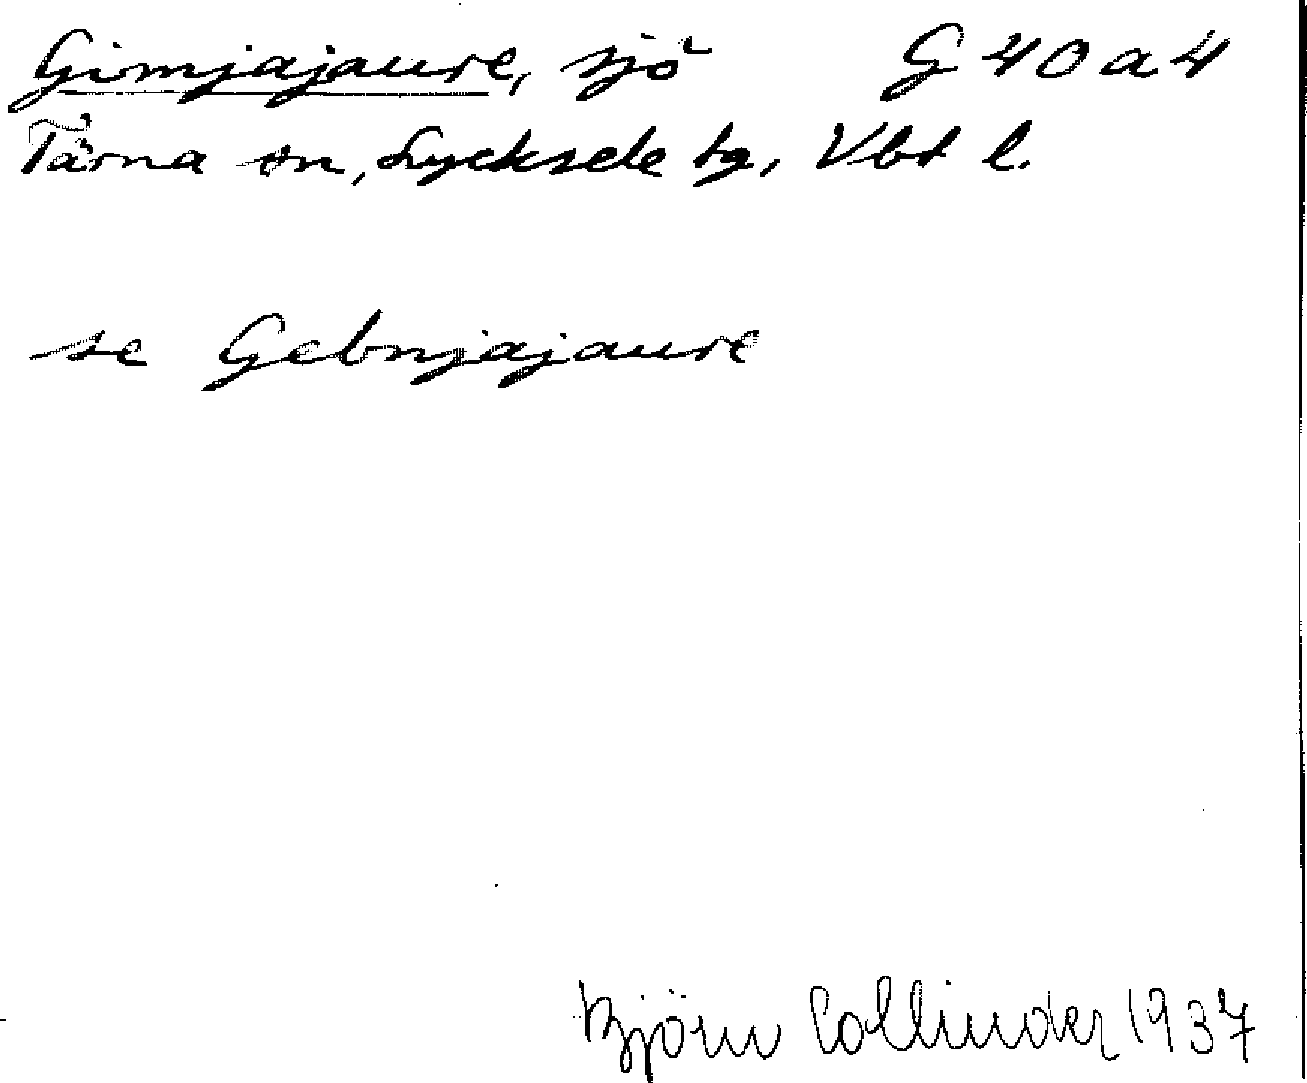 Gimjajaure, sjö G 40 a 4
Tärna sn, Lycksele tg, Vbt l.
se Gebnjajaure
Björn Collinder 1937